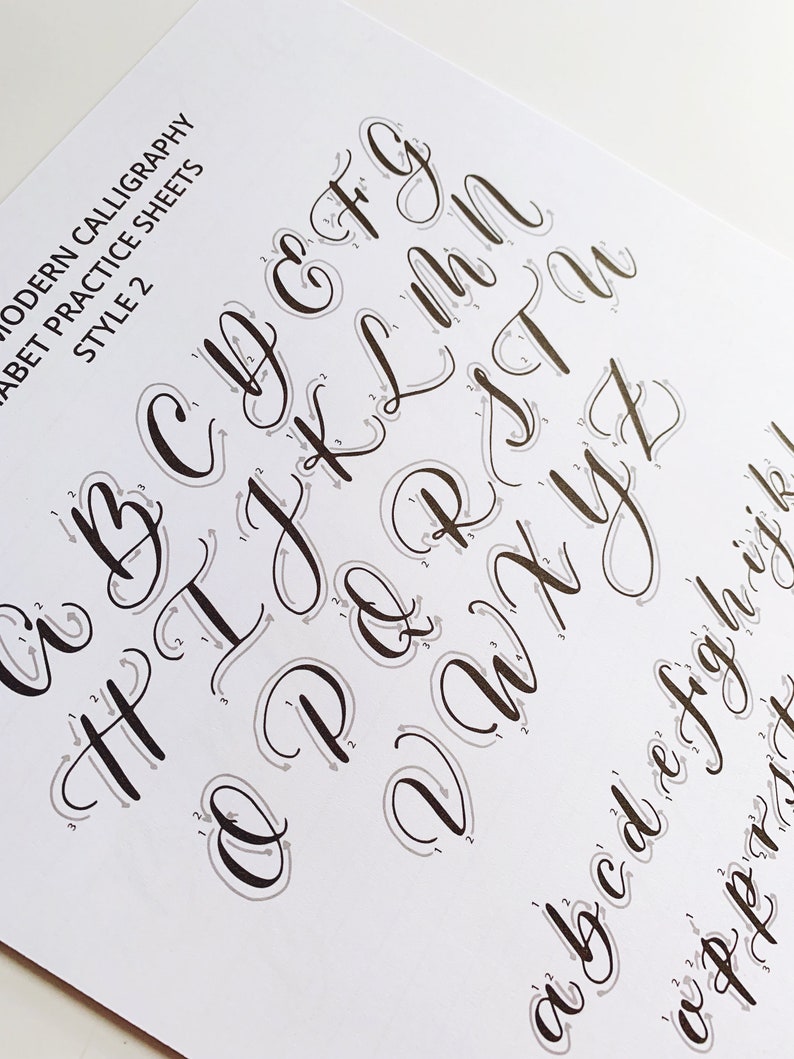 MODERN CALLIGRAPHY
ABET PRACTICE SHEETS
STYLE 2
A B C D E F G
H I J K L M N
O P Q R S T U
V W X Y Z
a b c d e f g h i j k l
o p q r s t